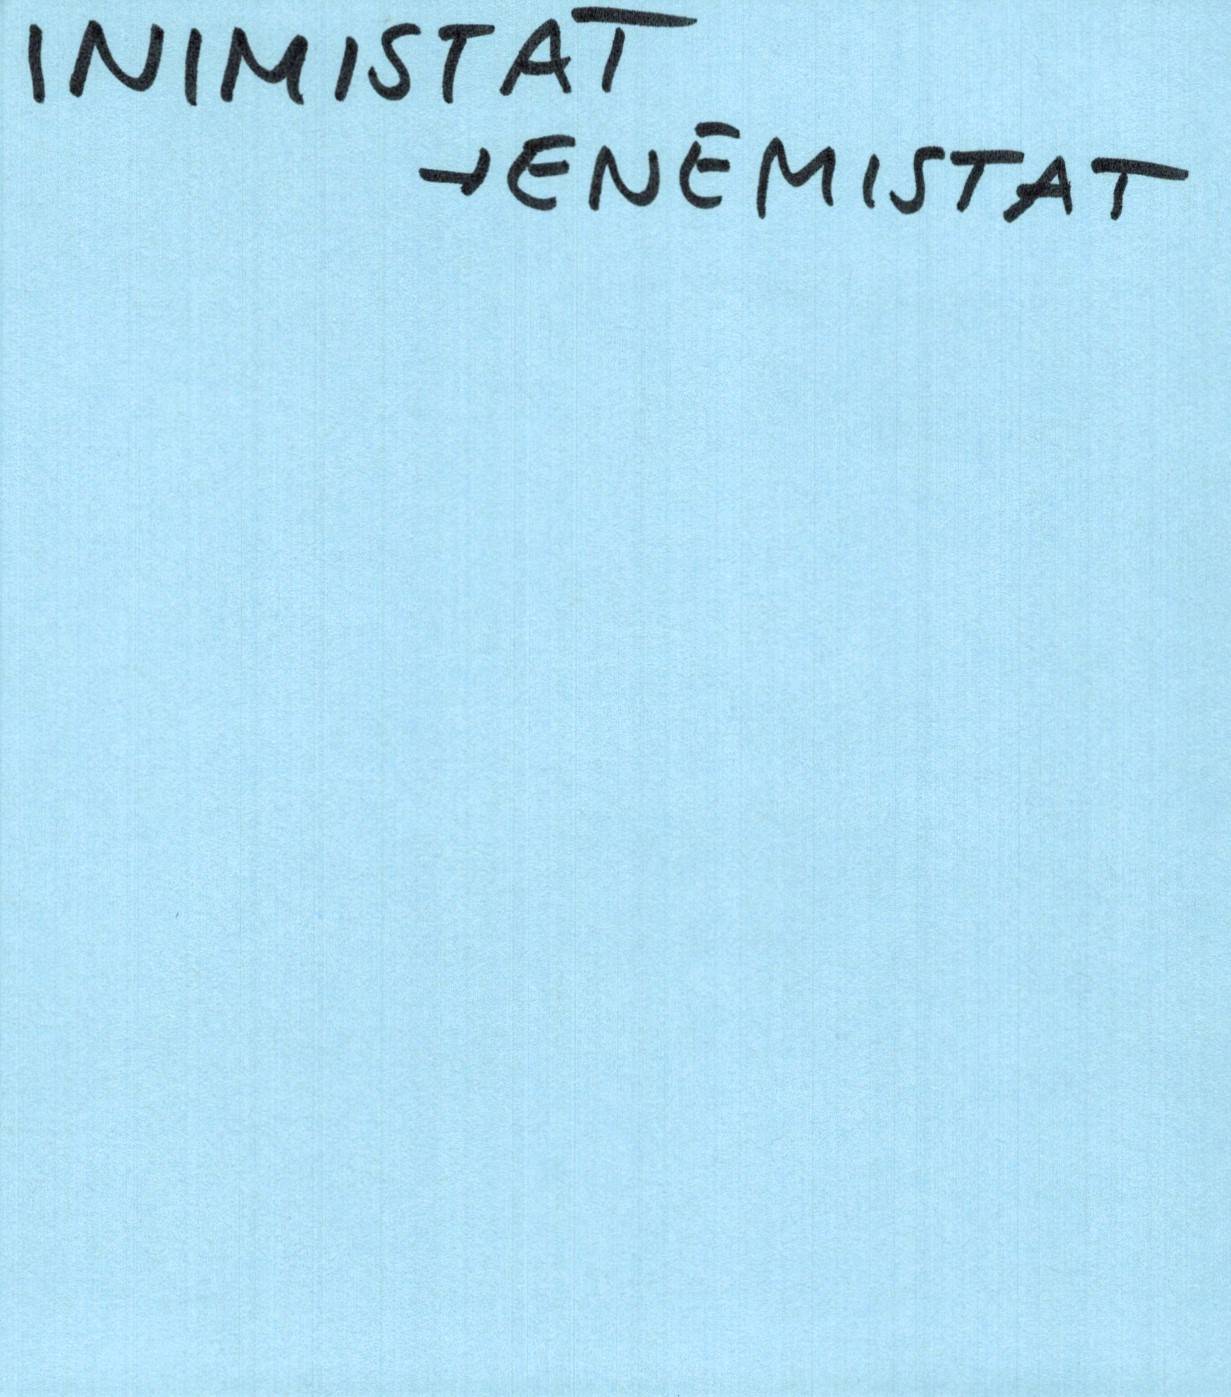 INIMISTAT
→ENEMISTAT